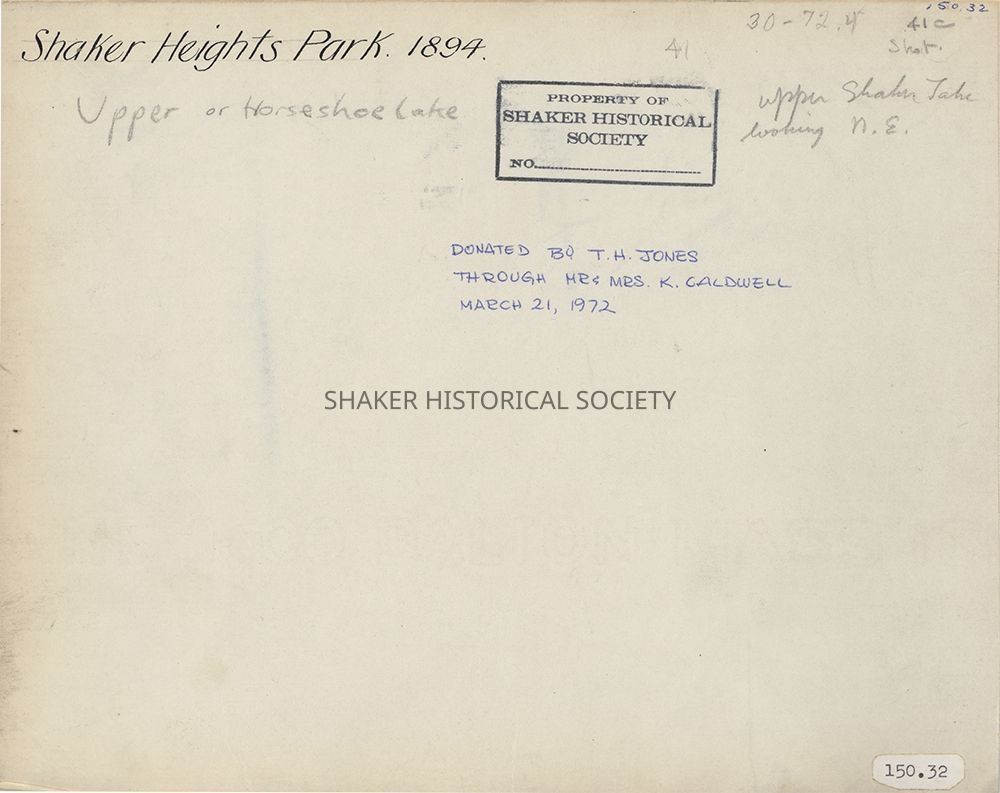 150.32
30-72.4 41C
Shaker Heights Park. 1894.
41
Upper or Horseshoe Lake
upper Shaker Lake
looking N.E.
PROPERTY OF
SHAKER HISTORICAL
SOCIETY
NO.
DONATED BY T.H. JONES
THROUGH MR & MRS. K. CALDWELL
MARCH 21, 1972
SHAKER HISTORICAL SOCIETY
150.32